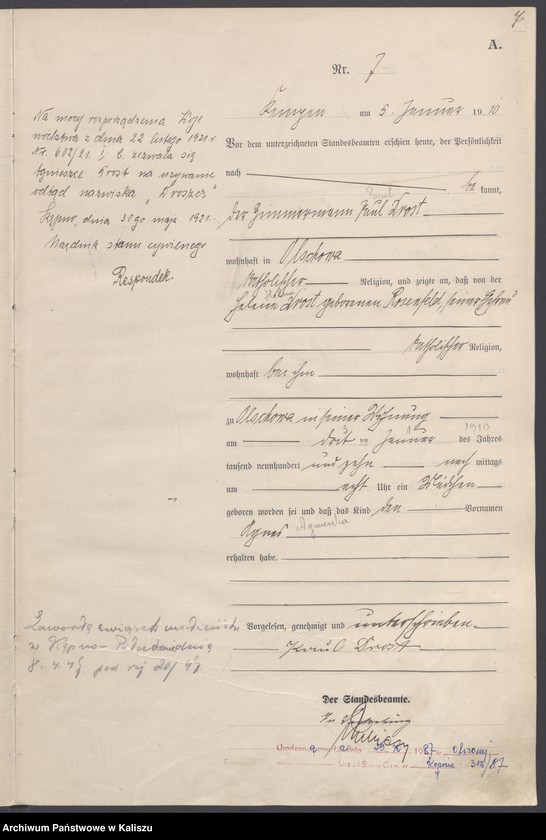 7
A.
Nr. 7
Kempen am 5. Januar 1910
Vor dem unterzeichneten Standesbeamten erschien heute, der Persönlichkeit
nach be kannt,
der Zimmermann Paul Drost
wohnhaft in Olschowa
katholischer Religion, und zeigte an, daß von der
Helene Drost geborenen Rosenfeld, seiner Ehefrau
katholischer Religion,
wohnhaft bei ihm
zu Olschowa in seiner Wohnung
am Januar des Jahres 1910
tausend neunhundert und zehn nach mittags
um acht Uhr ein Mädchen
geboren worden sei und daß das Kind den Vornamen
Agnes Agnieszka
erhalten habe.
Vorgelesen, genehmigt und unterschrieben
Paul Drost
Der Standesbeamte.
In Vertretung
Na mocy rozporządzenia Woje
wództwa z dnia 22 lutego 1921 r.
Nr. 602/21. I, b. zezwala się
Agnieszce Drost na używanie
odtąd nazwiska "Droszcz"
Kępno, dnia 30go maja 1921.
Urzędnik stanu cywilnego
Respondek.
w Kępno
8. 4. 49. pod nr 20/49
1987
312/87
Archiwum Państwowe w Kaliszu